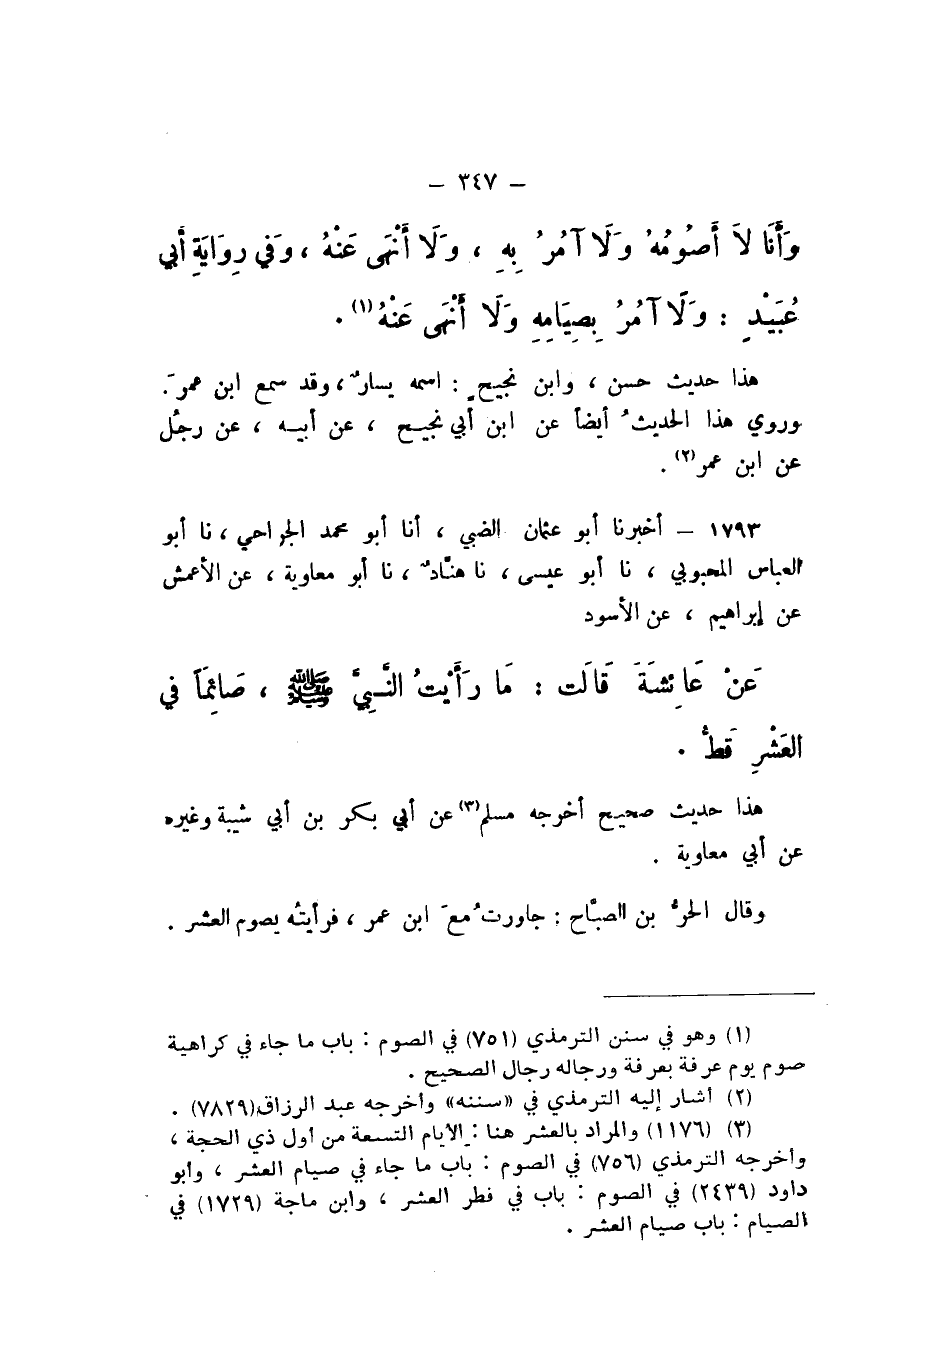 – ٣٤٧ –
وَأَنَا لاَ أَصُومُهُ وَلَا آمُرُ بِهِ ، وَلَا أَنْهَى عَنْهُ ، وَفي رِوَايَةِ أَبي
عُبَيْدٍ : وَلَا آمُرُ بِصِيَامِهِ وَلَا أَنْهَى عَنْهُ(١) .
هذا حديث حسن ، وابن نجيحٍ : اسمه يسارٌ ، وقد سمع ابن عمرَ .
وروي هذا الحديثُ أيضاً عن ابن أبي نجيح ، عن أبيه ، عن رجُل
عن ابن عمر(٢) .
١٧٩٣ – أخبرنا أبو عثمان الضبي ، أنا أبو محمد الجراحي ، نا أبو
العباس المحبوبي ، نا أبو عيسى ، نا هنّادٌ ، نا أبو معاوية ، عن الأعمش
عن إبراهيم ، عن الأسود
عَنْ عَائِشَةَ قَالَت : مَا رَأَيْتُ النَّبِيَّ ﷺ ، صَائِمَاً في
العَشْرِ قَطُّ .
هذا حديث صحيح أخرجه مسلم(٣) عن أبي بكر بن أبي شيبة وغيره
عن أبي معاوية .
وقال الحرُّ بن الصبَّاح : جاورتُ معَ ابن عمر ، فرأيتُه يصوم العشر .
(١) وهو في سنن الترمذي (٧٥١) في الصوم : باب ما جاء في كراهية
صوم يوم عرفة بعرفة ورجاله رجال الصحيح .
(٢) أشار إليه الترمذي في «سننه» وأخرجه عبد الرزاق (٧٨٢٩) .
(٣) (١١٧٦) والمراد بالعشر هنا : الأيام التسعة من أول ذي الحجة ،
وأخرجه الترمذي (٧٥٦) في الصوم : باب ما جاء في صيام العشر ، وأبو
داود (٢٤٣٩) في الصوم : باب في فطر العشر ، وابن ماجة (١٧٢٩) في
الصيام : باب صيام العشر .